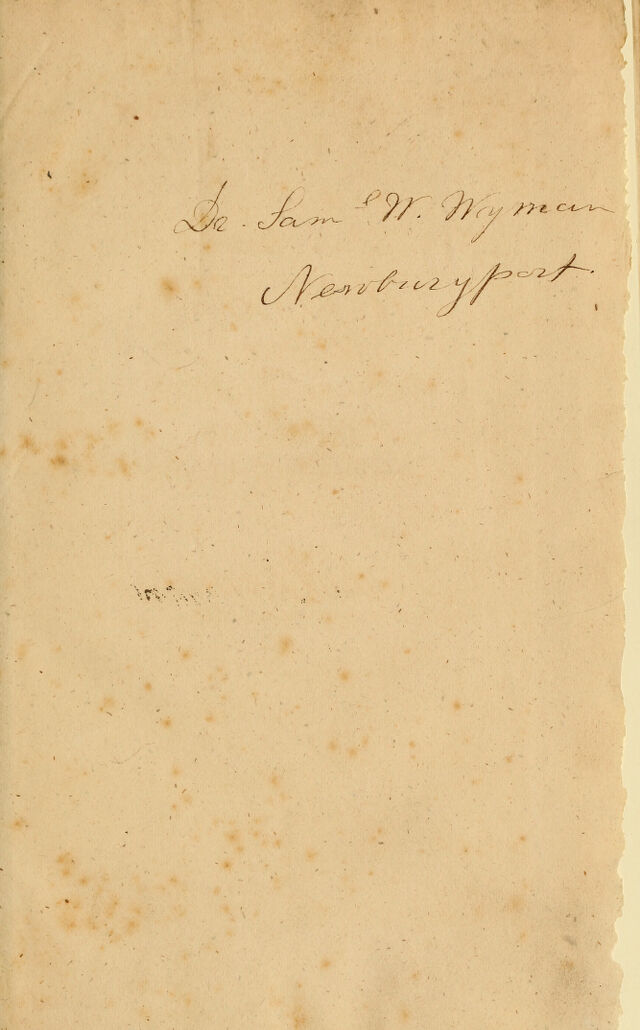 Dr. Sam^l W. Wyman
Newburyport.